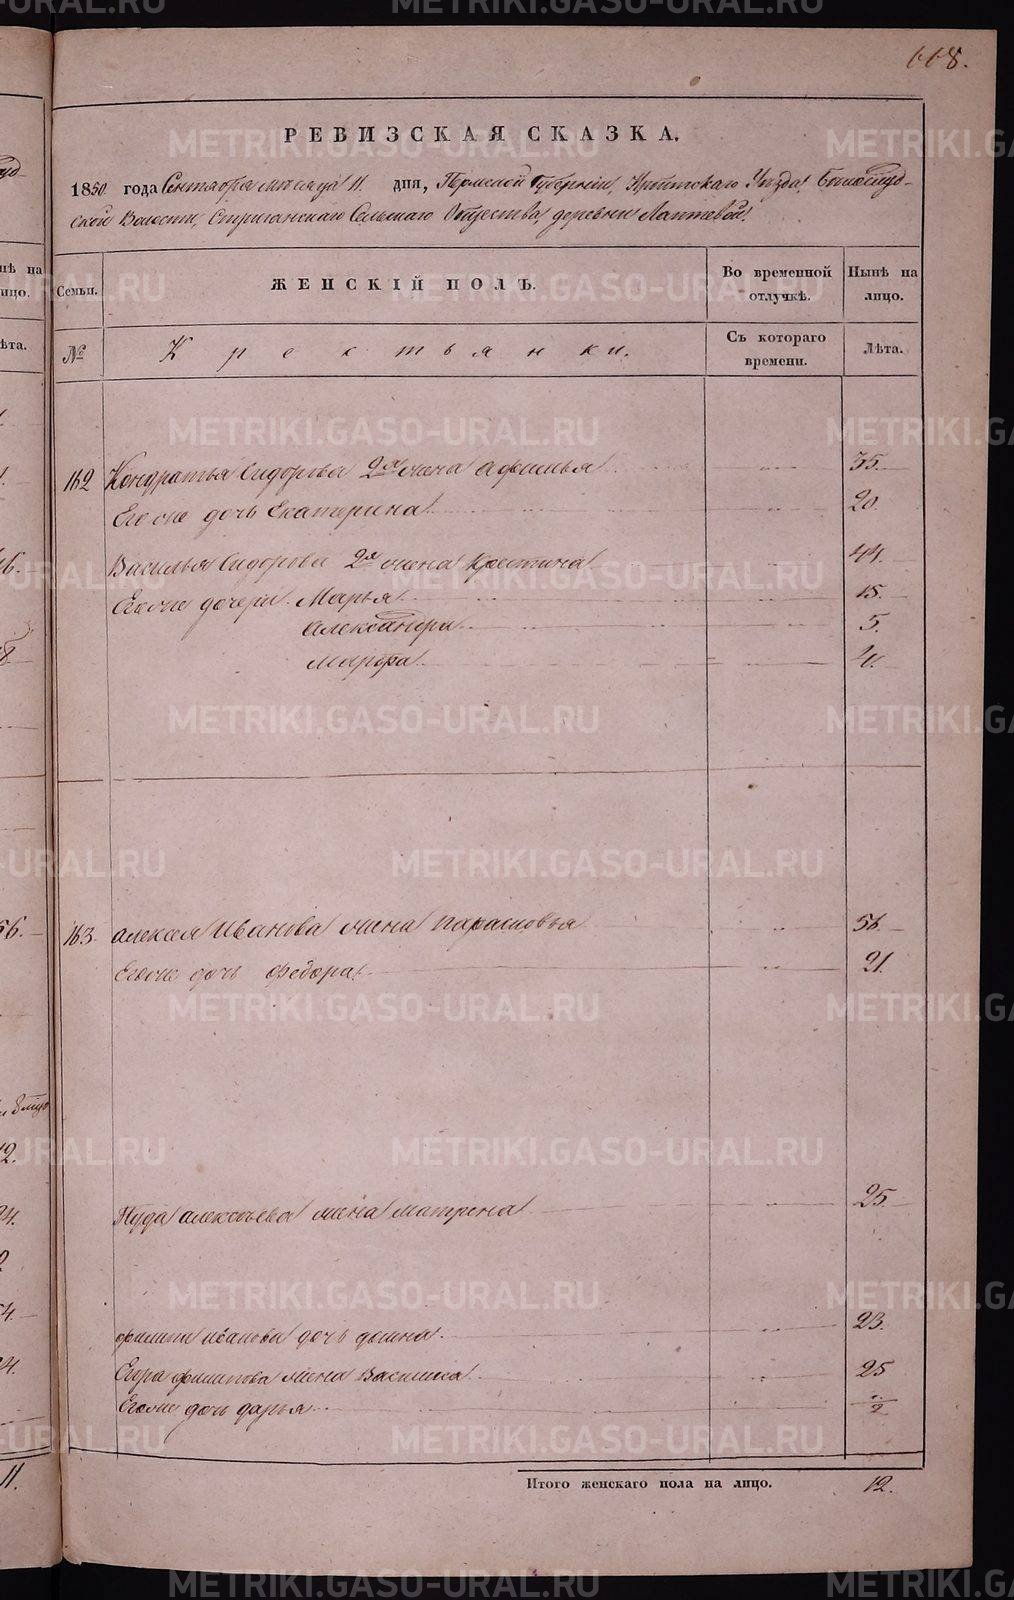 118.
РЕВИЗСКАЯ СКАЗКА.
1850 года Сентября месяца 11 дня, Пермской Губернiи, Ирбитскаго Уѣзда,
ской Волости, Стриганскаго Сельскаго Общества, деревни Лаптевой.
Семьи.
ЖЕНСКІЙ ПОЛЪ.
Во временной отлучкѣ.
Нынѣ на лицо.
№
Крестьянки.
Съ котораго времени.
Лѣта.
162 Кондратья Сидорова 2я жена Афимья 35.
Его же дочь Екатерина 20.
Василья Сидорова 2я жена Крестина 44.
Его же дочери Марья 15.
Александра 5.
Марфа
163. Алексея Иванова жена Парасковья 56.
Его же дочь Федора 21.
Алексѣева жена Матрена 25.
Филипа Иванова дочь Домна. 23.
Егора Филипова жена Василиса 25
Его же дочь Дарья
Итого женскаго пола на лицо. 12.
нѣ на
ицо.
ѣта.
46.
56.
12.
24.
54.
24.
11.
METRIKI.GASO-URAL.RU